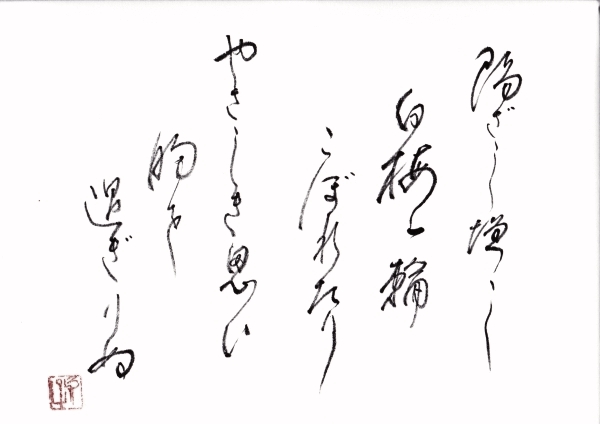 陽ざし増し
白梅一輪
こぼれたり
やさしき思ひ
胸を
過ぎりぬ